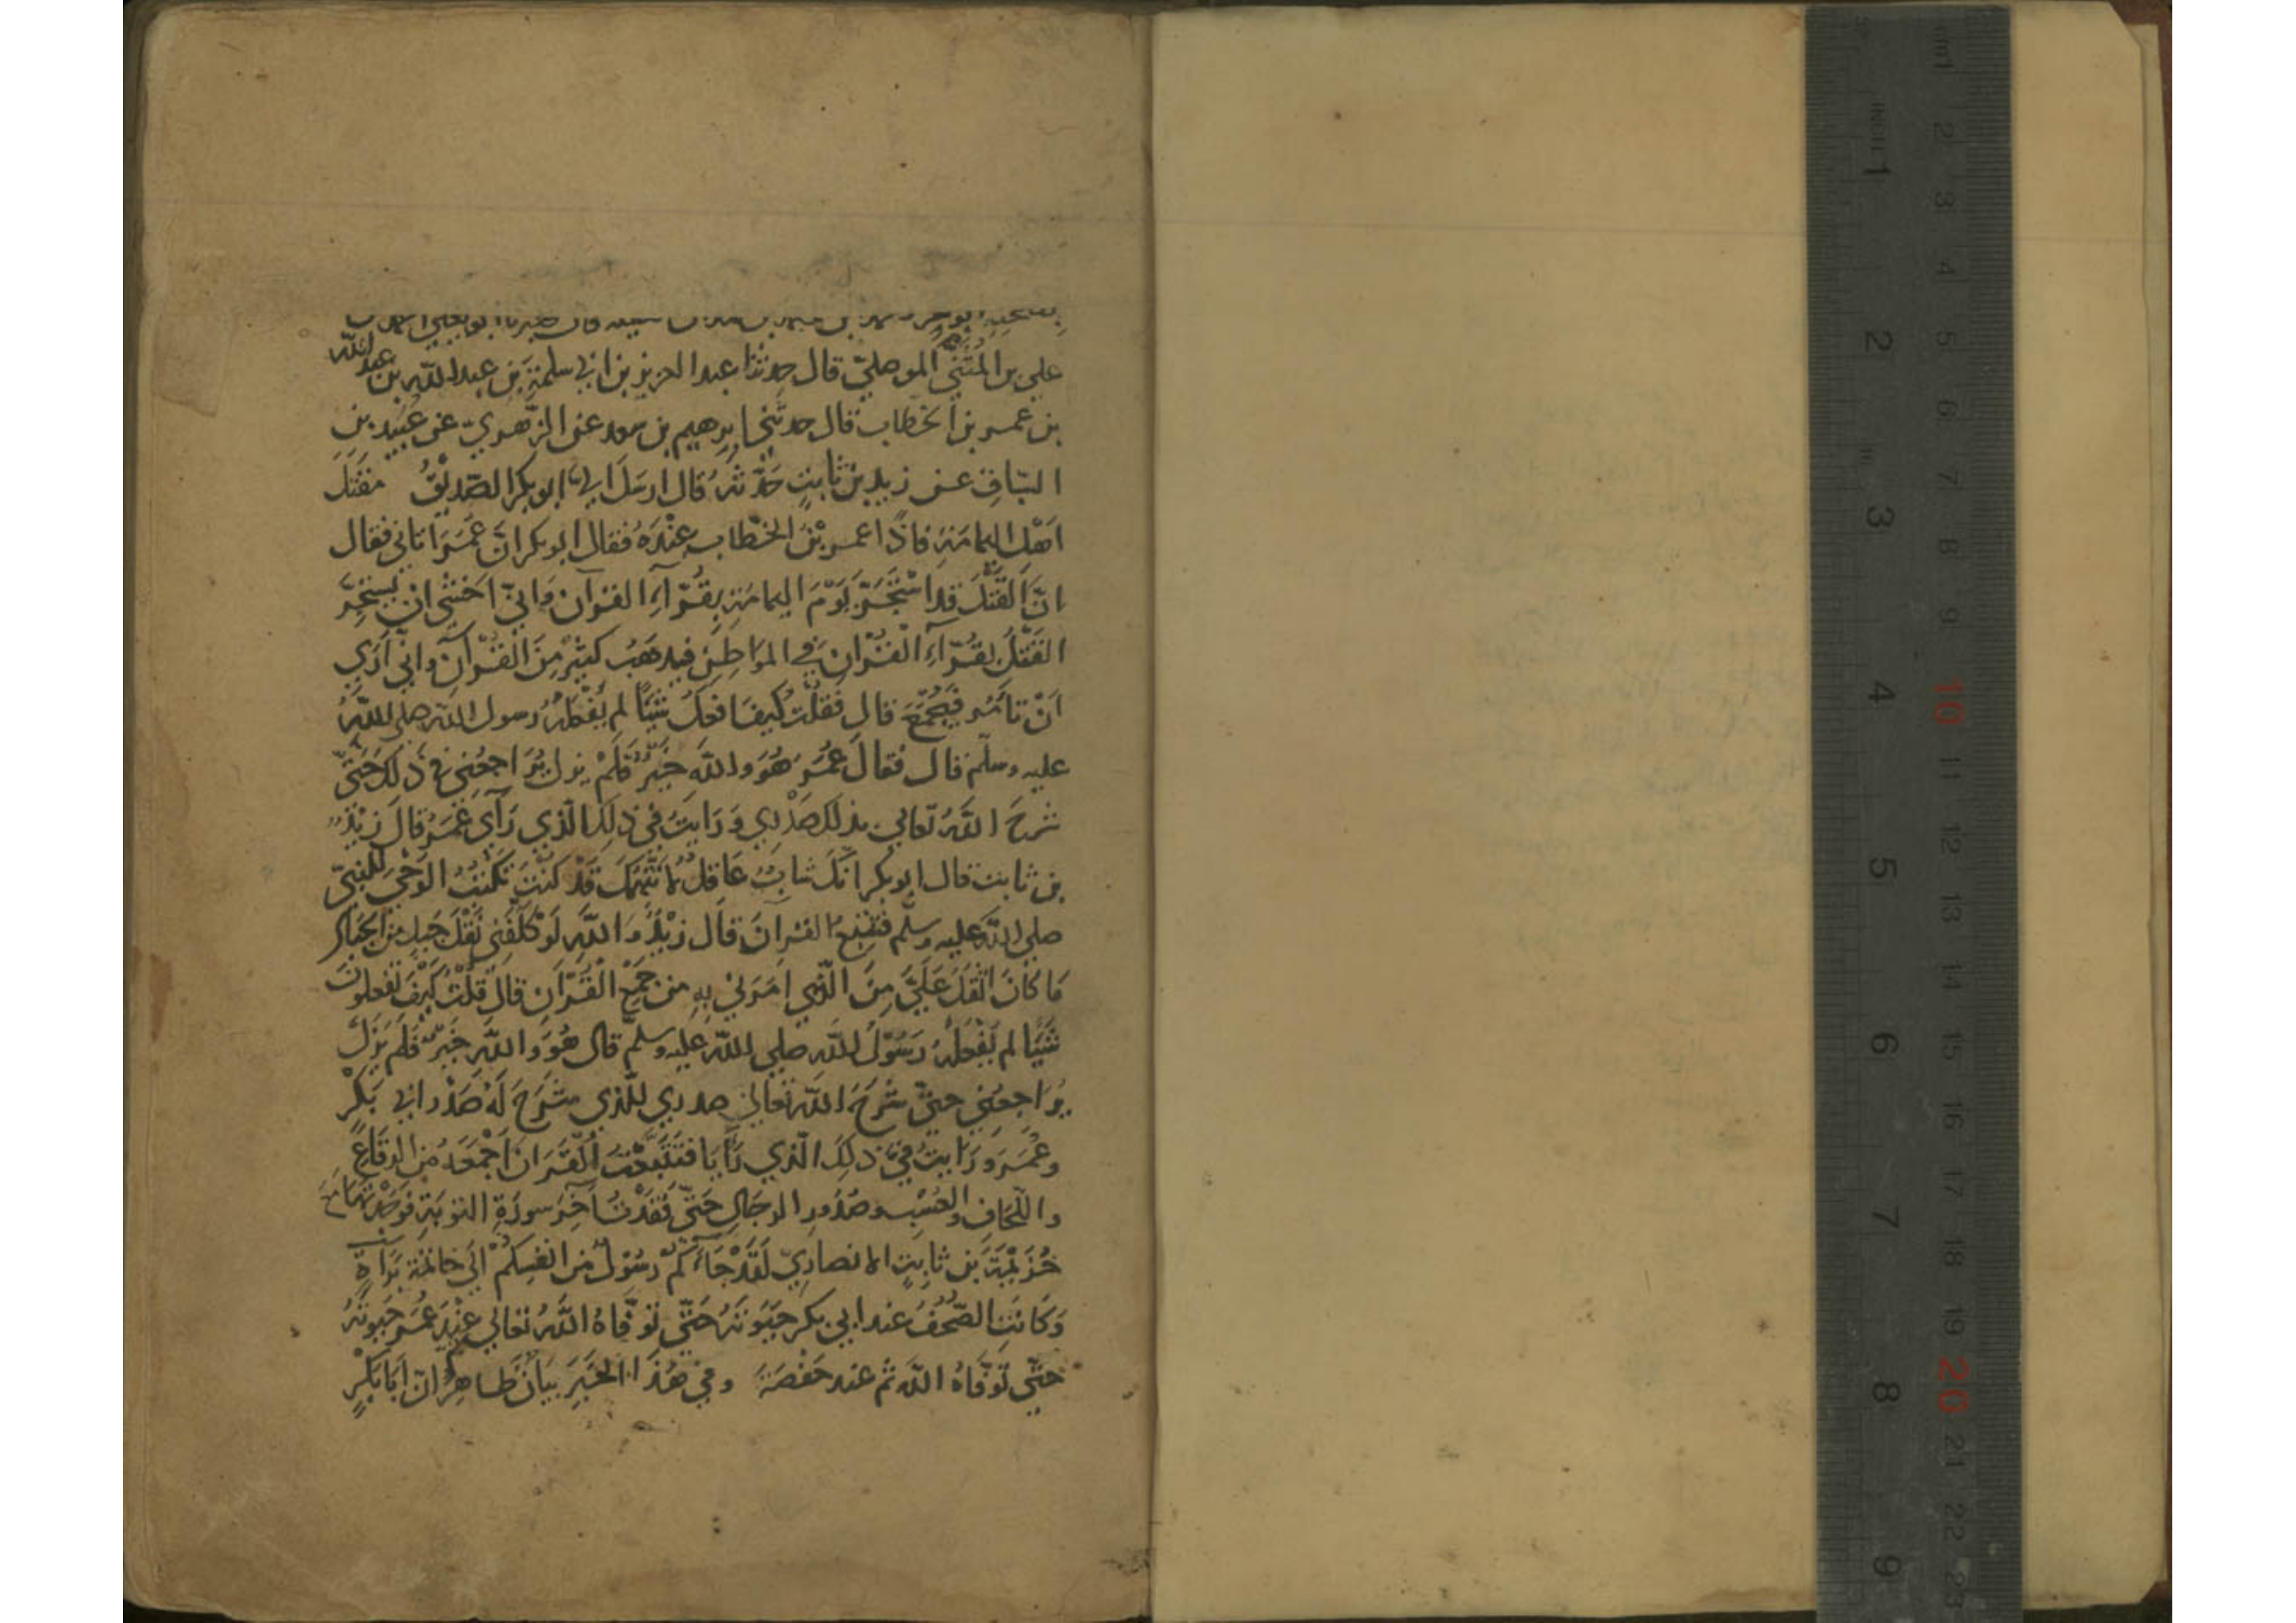 علي بن المُثَنّى الموصليّ قال حدثنا عبد العزيز بن ابي سلمة بن عبد اللّه بن عبد اللّه
بن عمر بن الخطاب قال حدثني ابرهيم بن سعد عن الزّهري عن عُبَيد بن
السّبّاقِ عن زيد بن ثابتٍ حَدّثهُ قال ارسَلَ اليّ ابو بكر الصّدّيقُ مقتَل
اَهْل اليمامَةِ فاذا عمر بْنُ الخطّاب عِنْدَهُ فقال ابو بكر انّ عُمَرَ اتاني فقال
انّ القَتْلَ قد اسْتَحَرّ يَوْمَ اليمامَةِ بِقُرّاءِ القرآن وَاِنّي اَخشى ان يستَحِرَّ
القَتْلُ بقُرّآءِ الْقُرْان في المواطِنِ فيذهَبُ كثيْرٌ مِنَ الْقُرْآنِ واِنّي اَرَي
اَنْ تاْمُر فيُجْمَعَ قال فَقلْتُ كيفَ افعَلُ شَيْئًا لم يَفْعَلْهُ رسول اللّه صلي اللّهُ
عليه وسلّم قال فَقالَ عُمَرُ هُوَ واللّهِ خَيْرٌ فَلَمْ يزل يُرَاجعُني في ذلك حَتّي
شرحَ اللّهُ تعالي بذلك صَدْري وَرَايتُ في ذلِكَ الّذي رَآي عُمَرُ قالَ زيْدُ
بن ثابت قال ابو بكر انّكَ شابٌّ عَاقِلٌ لا نَتّهِمُكَ قَدْ كنْتَ تكْتُبُ الوَحْيَ للنّبيّ
صلي اللّه عليه وسلّم فَتَتَبّعِ القرانَ قال زيْدٌ وَاللّهِ لَوْ كلّفَني نَقْلَ جَبلٍ من الجبالِ
مَا كانَ اَثْقَلَ عَلَيَّ مِنَ الّذي اَمَرَني بهِ من جَمْعِ القُرْانِ قالَ قلْتُ كَيْفَ تَفعلونَ
شَيْئًا لم يَفْعَلْهُ رَسُوْلُ اللّه صلي اللّه عليه وسلّم قال هُوَ وَاللّهِ خَيْرٌ فَلَم يَزَلْ
يُرَاجِعُني حتّي شَرَحَ اللّه تعالي صدري للّذي شَرَحَ لَهُ صَدْر ابي بَكْرٍ
وعُمَرَ وَرَايتُ في ذلِكَ الّذي رَاَيَا فتتَبّعْتُ القُرَان اَجْمَعُهُ من الرِقَاعِ
واللّخَافِ والعُسُبِ وصُدُورِ الرجَالِ حَتّي فَقَدْتُ آخِرَ سورَةِ التوبَةِ فوَجَدْتهَا مَعَ
خُزَيْمَةَ بن ثابِتٍ الانصاريّ لَقَدْ جَآءَكُمْ رسُوْلٌ من انفسِكُمْ الي خاتمة بَرَآةٍ
وَكَانَتِ الصّحُفُ عند ابي بكر حَيَوتَهُ حَتّي تَوَفّاهُ اللّهُ تعالي ثم عِنْدَ عُمَرَ حَيوتَهُ
حَتّي تَوَفّاهُ اللّه ثم عند حَفْصَةَ وفي هٰذَا الخَبَرِ بيَانٌ ظاهِرٌ انّ اَبَا بَكْرٍ